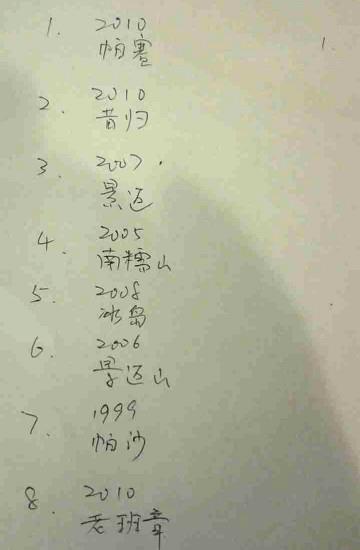 1. 2010
帕赛
2. 2010
昔归
3. 2007.
景迈
4. 2005
南糯山
5. 2008
冰岛
6. 2006
景迈山
7. 1999
帕沙
8. 2010
老班章
1.